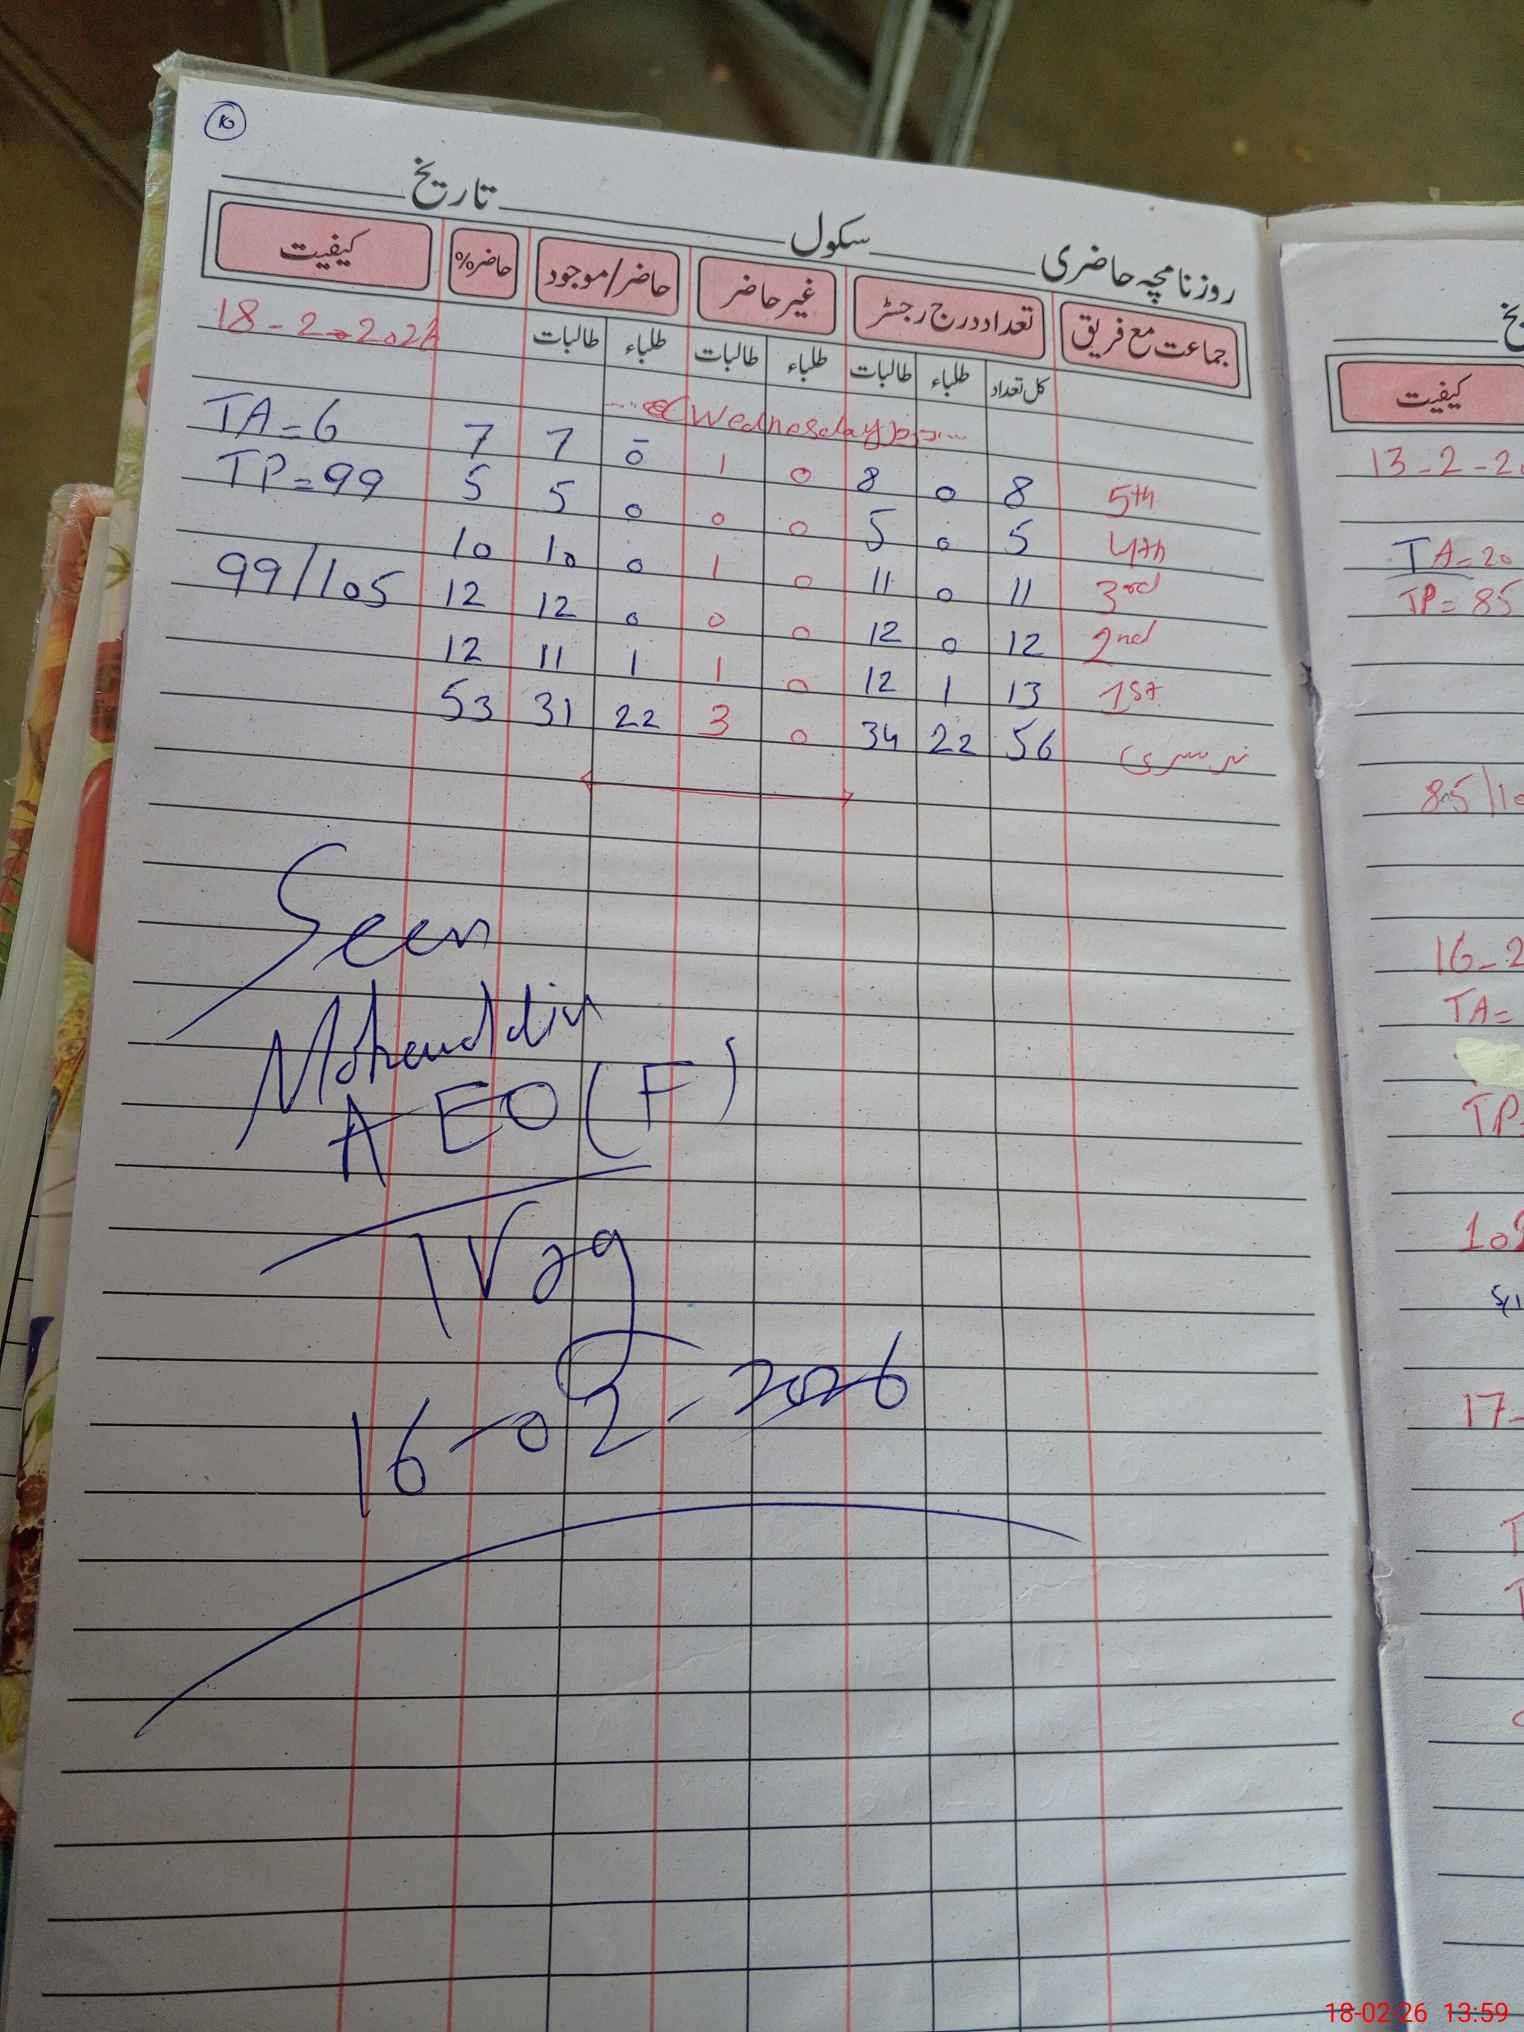 10
روزنامچہ حاضری سکول تاریخ
جماعت مع فریق تعداد درج رجسٹر غیر حاضر حاضر/موجود حاضر% کیفیت
کل تعداد طلباء طالبات طلباء طالبات طلباء طالبات
18-2-2026
(Wednesday)
5th 8 0 8 0 1 0 7 7 TA=6
4th 5 0 5 0 0 0 5 5 TP=99
3rd 11 0 11 0 1 0 10 10
2nd 12 0 12 0 0 0 12 12 99/105
1st 13 1 12 0 1 1 11 12
نرسری 56 22 34 0 3 22 31 53
Seen
AEO (F)
16-02-2026
یخ
کیفیت
13-2-20
TA=20
TP=85
85/10
16-2
TA=
TP=
17-
18-02-26 13:59